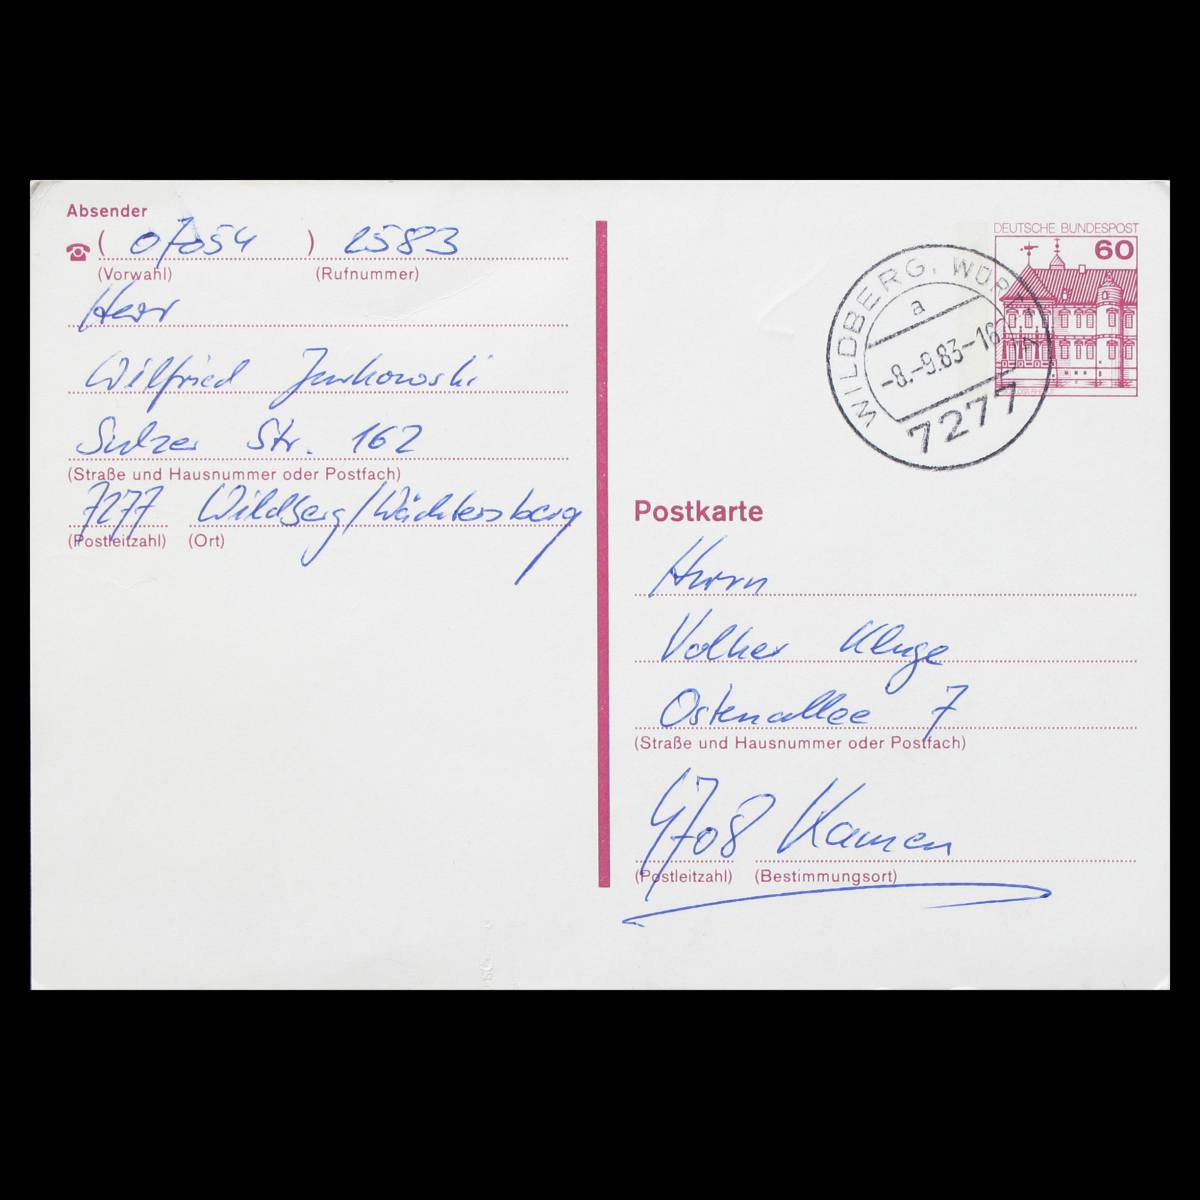 Absender
(07054) 2583
(Vorwahl) (Rufnummer)
Herr
Wilfried Jurkowski
Sulzer Str. 162
(Straße und Hausnummer oder Postfach)
7277 Wildberg/Wächtersberg
(Postleitzahl) (Ort)
DEUTSCHE BUNDESPOST
60
WILDBERG, WÜRTT
a
-8.-9.83-16
7277
Postkarte
Herrn
Volker Kluge
Ostenallee 7
(Straße und Hausnummer oder Postfach)
4708 Kamen
(Postleitzahl) (Bestimmungsort)